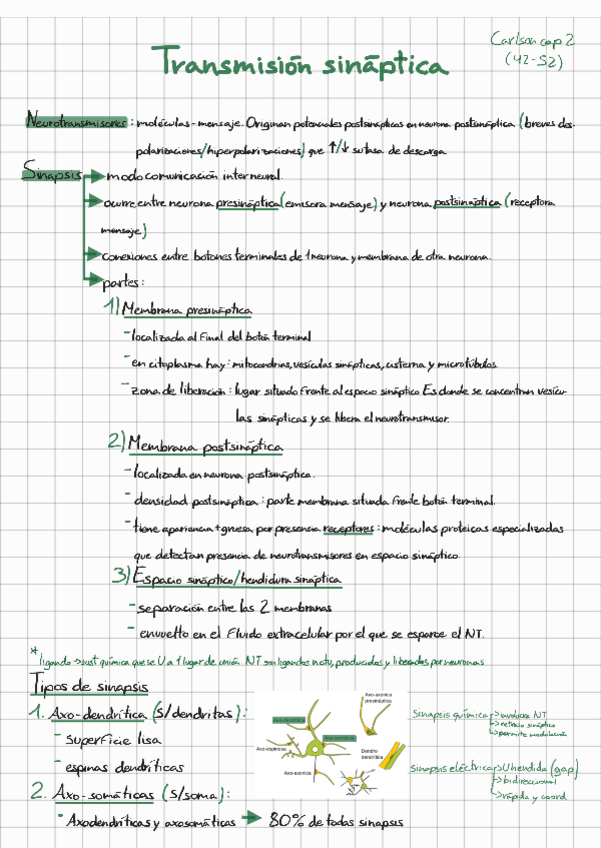 Carlson cap 2
(42-52)
Transmisión sináptica
Neurotransmisores: moléculas-mensaje. Originan potenciales postsinápticos en neurona postsináptica (breves des-
polarizaciones/hiperpolarizaciones) que ↑/↓ su tasa de descarga
Sinapsis → modo comunicación interneural.
→ ocurre entre neurona presináptica (emisora mensaje) y neurona postsináptica (receptora
mensaje)
→ conexiones entre botones terminales de 1 neurona y membrana de otra neurona.
→ partes:
1) Membrana presináptica
- localizada al final del botón terminal
- en citoplasma hay: mitocondrias, vesículas sinápticas, cisterna y microtúbulos
- zona de liberación: lugar situado frente al espacio sináptico Es donde se concentran vesícu-
las sinápticas y se libera el neurotransmisor.
2) Membrana postsináptica
- localizada en neurona postsináptica.
- densidad postsináptica: parte membrana situada frente botón terminal.
- tiene apariencia + gruesa por presencia receptores: moléculas proteicas especializadas
que detectan presencia de neurotransmisores en espacio sináptico.
3) Espacio sináptico/hendidura sináptica
- separación entre las 2 membranas
- envuelto en el fluido extracelular por el que se esparce el NT.
* ligando → sust química que se U a 1 lugar de unión NT son ligandos natu, producidos y liberados por neuronas
Tipos de sinapsis
1. Axo-dendrítica (s/dendritas):
- superficie lisa
- espinas dendríticas
2. Axo-somáticas (s/soma):
- Axodendríticas y axosomáticas → 80% de todas sinapsis
Axo-axónica
presináptica
Axo-espinosa
Dendro
dendrítica
Axo-axónica
Sinapsis química → involucra NT
→ retraso sináptico
→ permite modulación
Sinapsis eléctrica → U hendida (gap)
→ bidireccional
→ rápida y coord